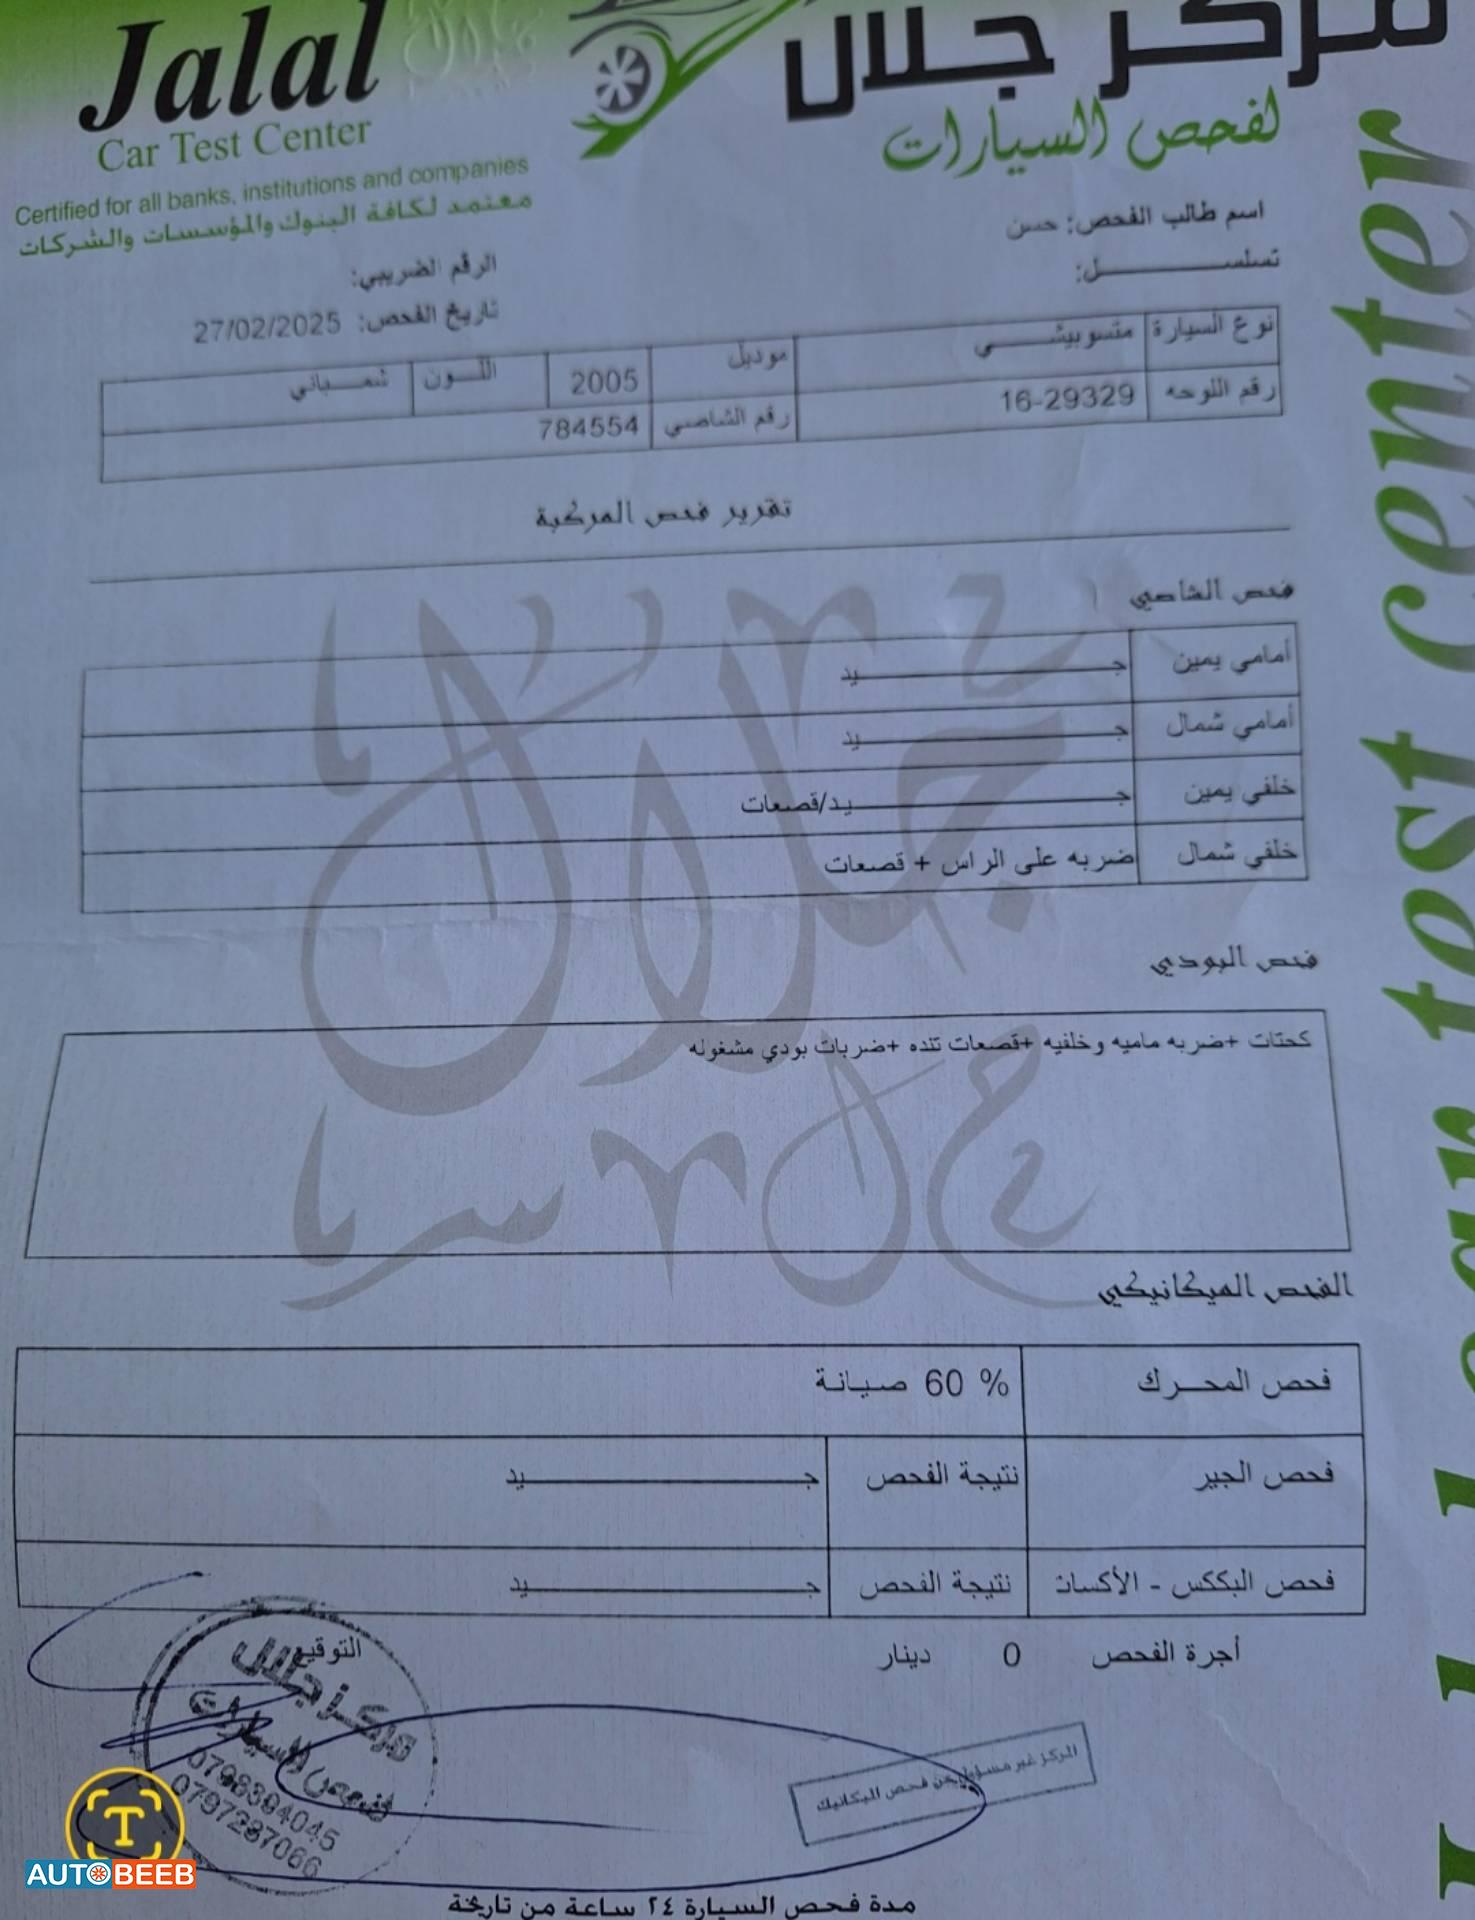 Jalal
مركز جلال
Car Test Center
لفحص السيارات
Certified for all banks, institutions and companies
معتمد لكافة البنوك والمؤسسات والشركات
اسم طالب الفحص: حسن
الرقم الضريبي:
تسلسل:
تاريخ الفحص: 27/02/2025
نوع السيارة متسوبيشي موديل 2005 اللون شمباني
رقم اللوحه 16-29329 رقم الشاصي 784554
تقرير فحص المركبة
فحص الشاصي
أمامي يمين جيد
أمامي شمال جيد
خلفي يمين جيد/قصعات
خلفي شمال ضربه على الراس + قصعات
فحص البودي
كحتات +ضربه ماميه وخلفيه +قصعات تنده +ضربات بودي مشغوله
الفحص الميكانيكي
فحص المحرك 60 % صيانة
فحص الجير نتيجة الفحص جيد
فحص البككس - الأكسات نتيجة الفحص جيد
أجرة الفحص 0 دينار
التوقيع
مركز جلال
لفحص السيارات
0798394045
0797287066
المركز غير مسؤول عن فحص الميكانيك
مدة فحص السيارة ٢٤ ساعة من تاريخة
car test center
AUTOBEEB